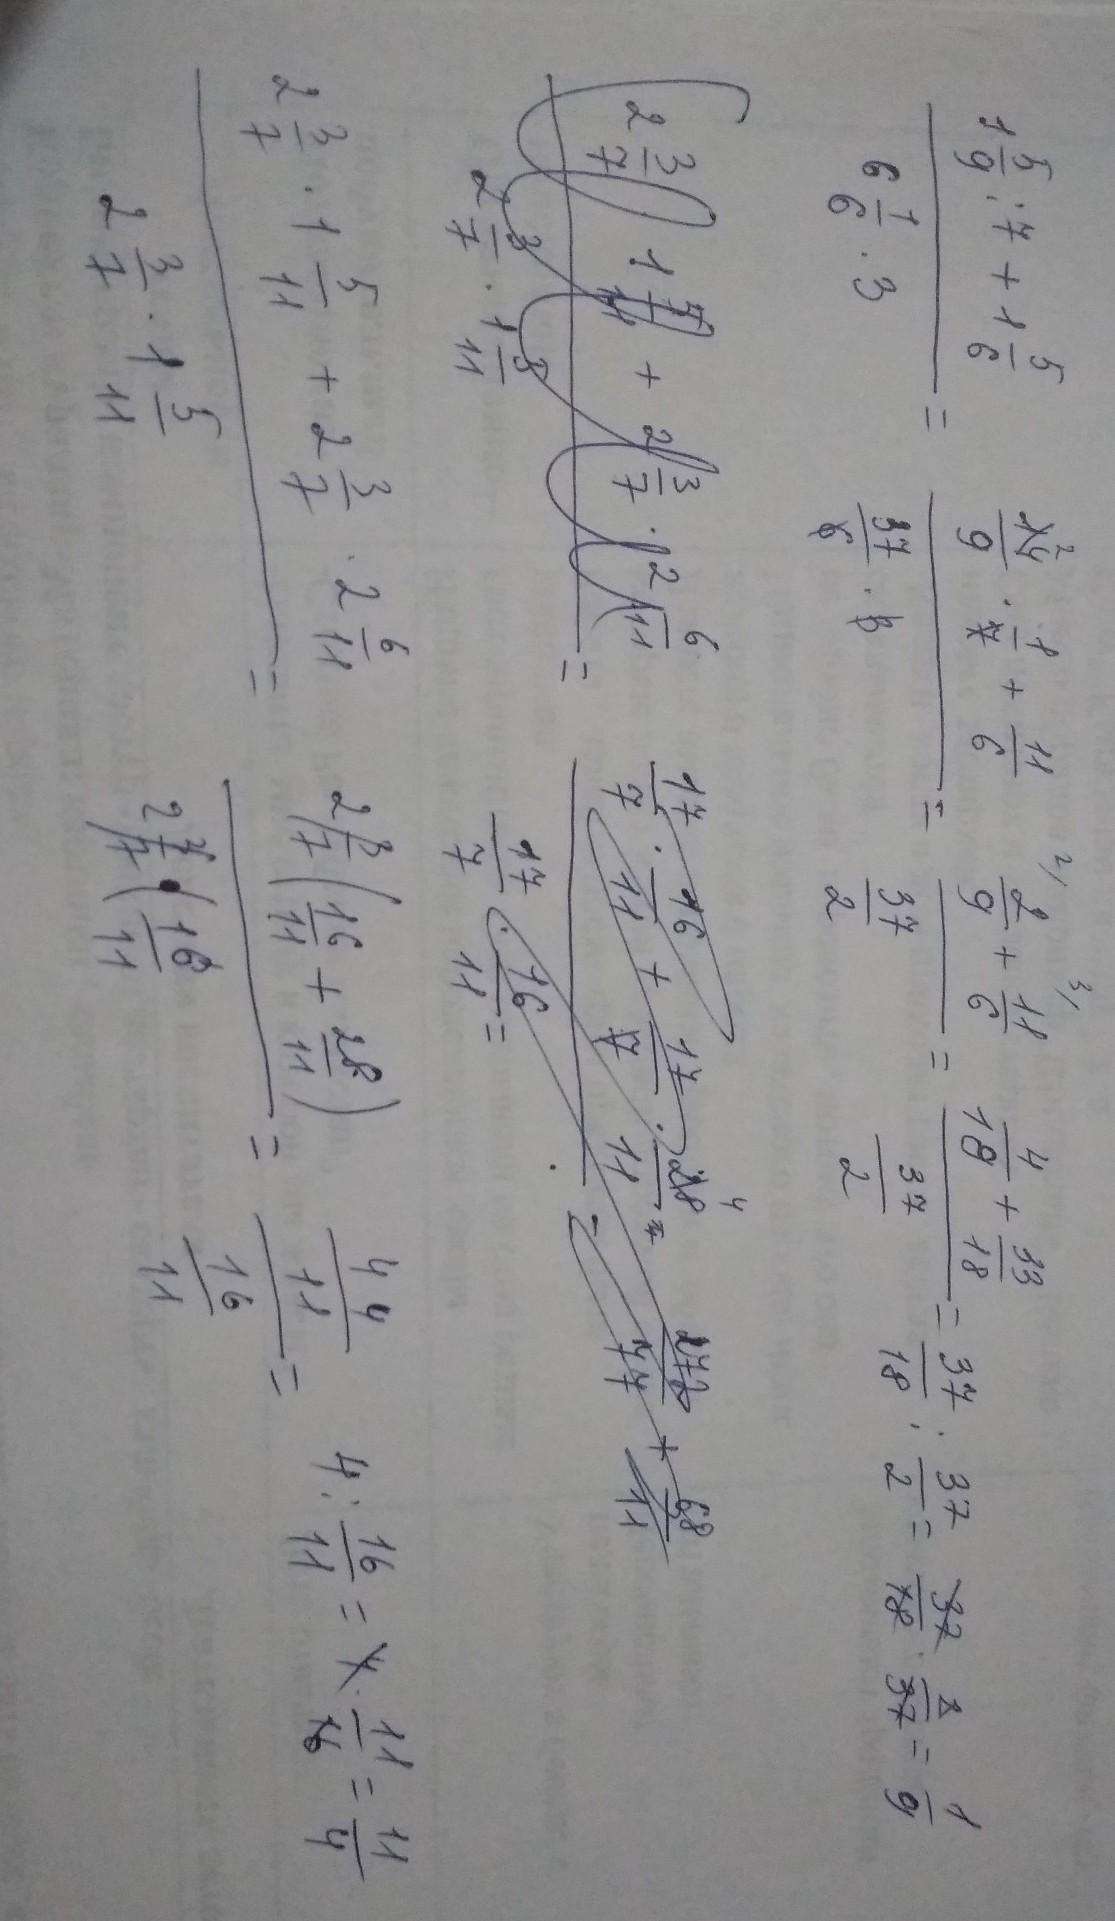 1 5/9 : 7 + 1 5/6 / 6 1/6 · 3 = 14/9 · 1/7 + 11/6 / 37/6 · 3 = 2/9 + 11/6 / 37/2 = 4/18 + 33/18 / 37/2 = 37/18 : 37/2 = 37/18 · 2/37 = 1/9
2 3/7 · 1 5/11 + 2 3/7 · 2 6/11 / 2 3/7 · 1 5/11 = 17/7 · 16/11 + 17/7 · 28/11 / 17/7 · 16/11 = 272/77 + 68/11
2 3/7 · 1 5/11 + 2 3/7 · 2 6/11 / 2 3/7 · 1 5/11 = 2 3/7 (16/11 + 28/11) / 2 3/7 · (16/11 = 44/11 / 16/11 = 4 : 16/11 = 4 · 11/16 = 11/4